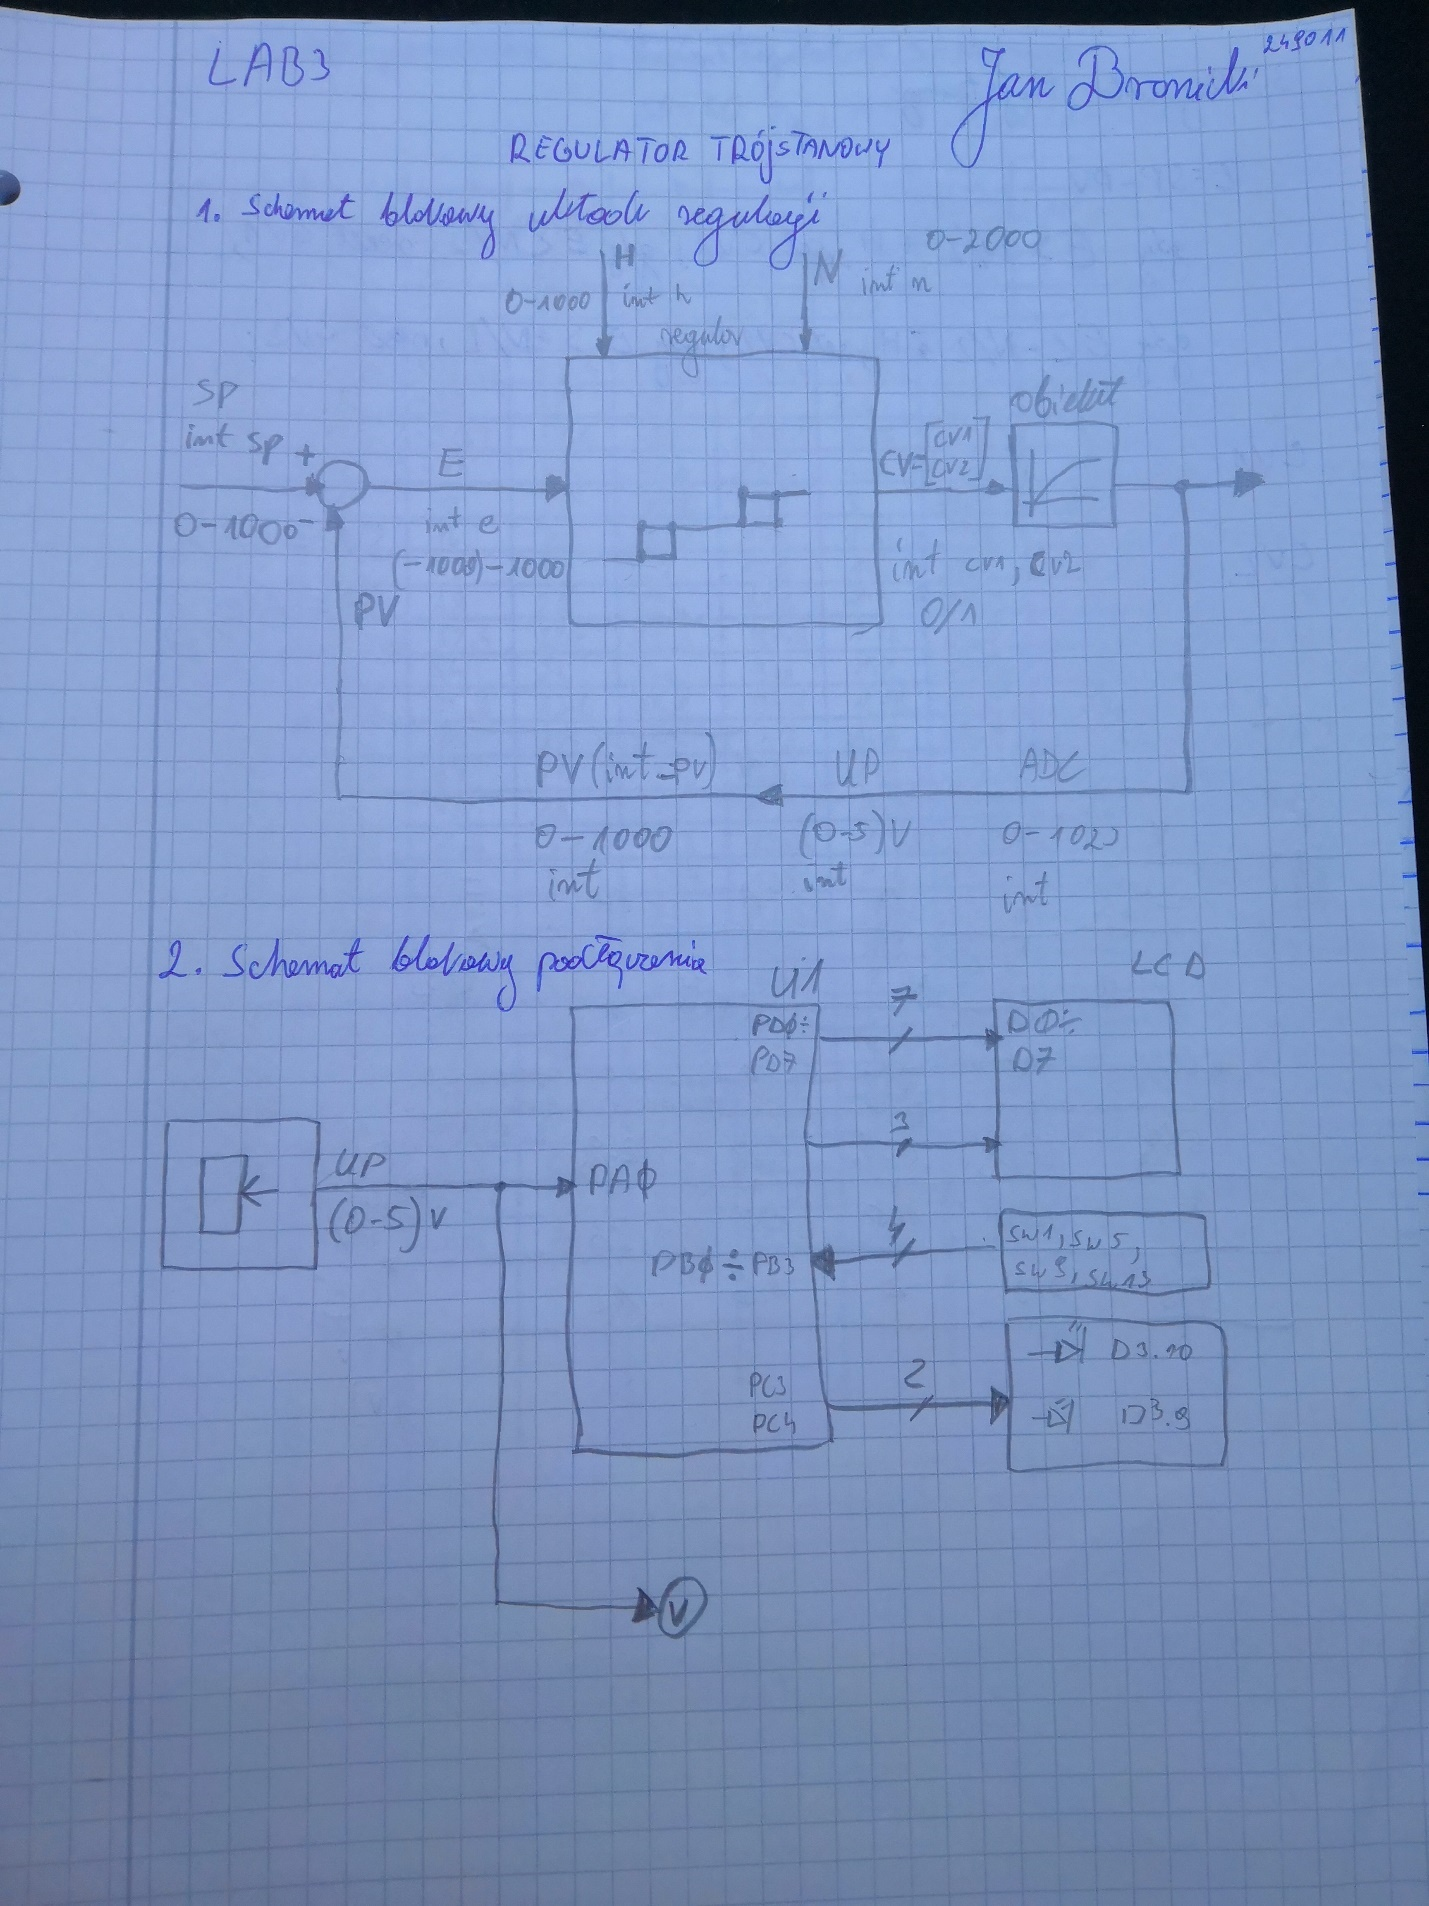 LAB3
Jan Bronicki
249011
REGULATOR TRÓJSTANOWY
1. Schemat blokowy układu regulacji
H
0-1000
int h
N
int n
0-2000
regulor
SP
int sp
+
0-1000
-
E
int e
(-1000)-1000
PV
CV=[CV1
CV2]
obiekt
int cv1, cv2
0/1
PV (int pv)
UP
ADC
0-1000
(0-5)V
0-1023
int
int
int
2. Schemat blokowy podłączenia
U1
LCD
PDØ÷
PD7
7
DØ÷
D7
3
UP
(0-5)V
PAØ
PBØ÷PB3
4
SW1, SW5,
SW9, SW13
PC3
PC4
2
D3.10
D3.9
V